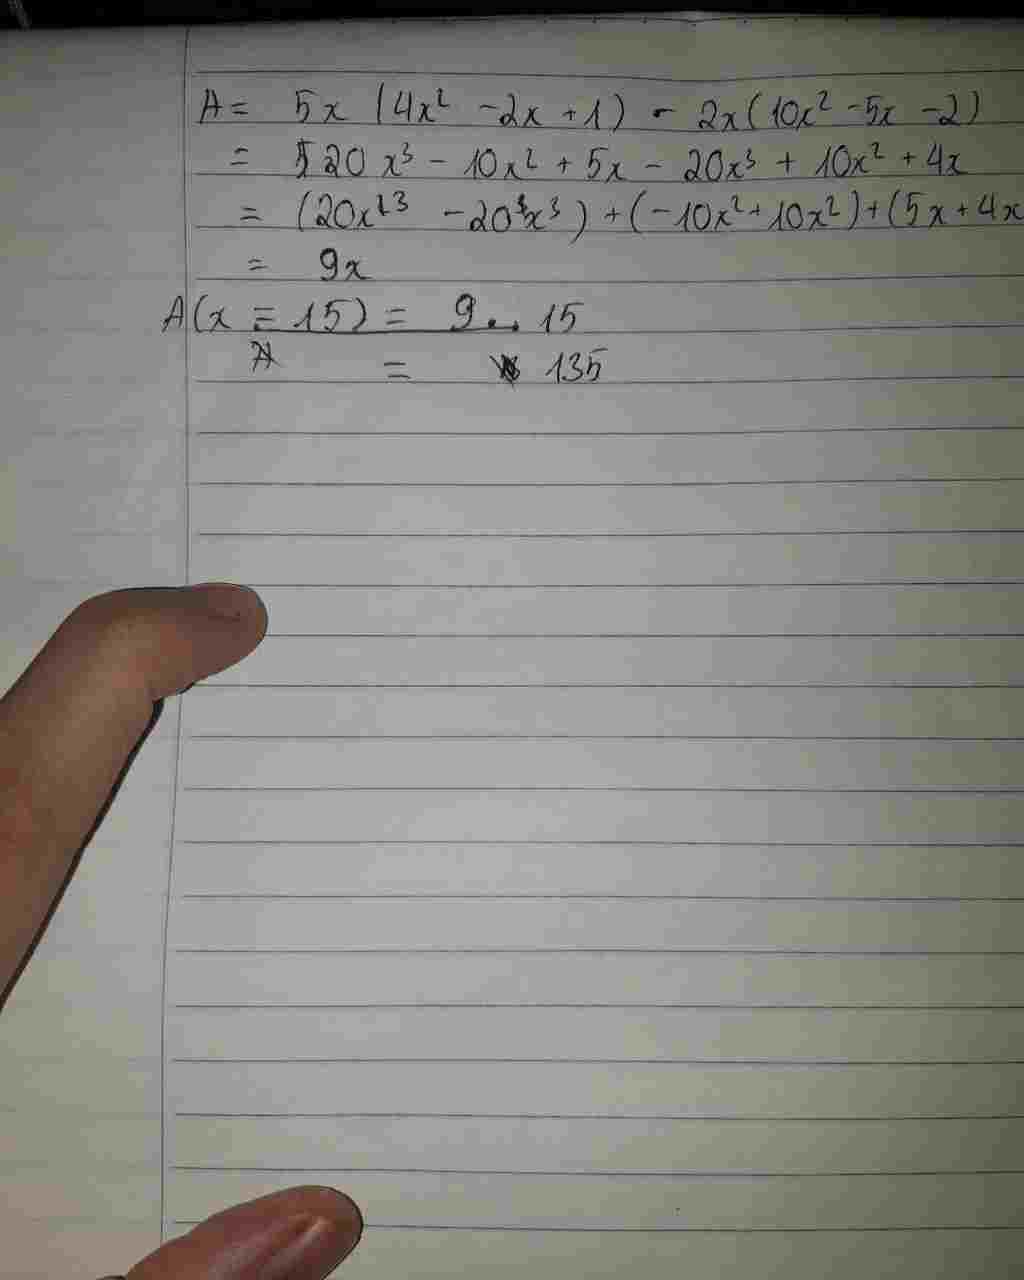 A = 5x (4x² - 2x + 1) - 2x(10x² - 5x - 2)
= 20x³ - 10x² + 5x - 20x³ + 10x² + 4x
= (20x³ - 20x³) + (-10x² + 10x²) + (5x + 4x
= 9x
A(x = 15) = 9 . 15
= 135